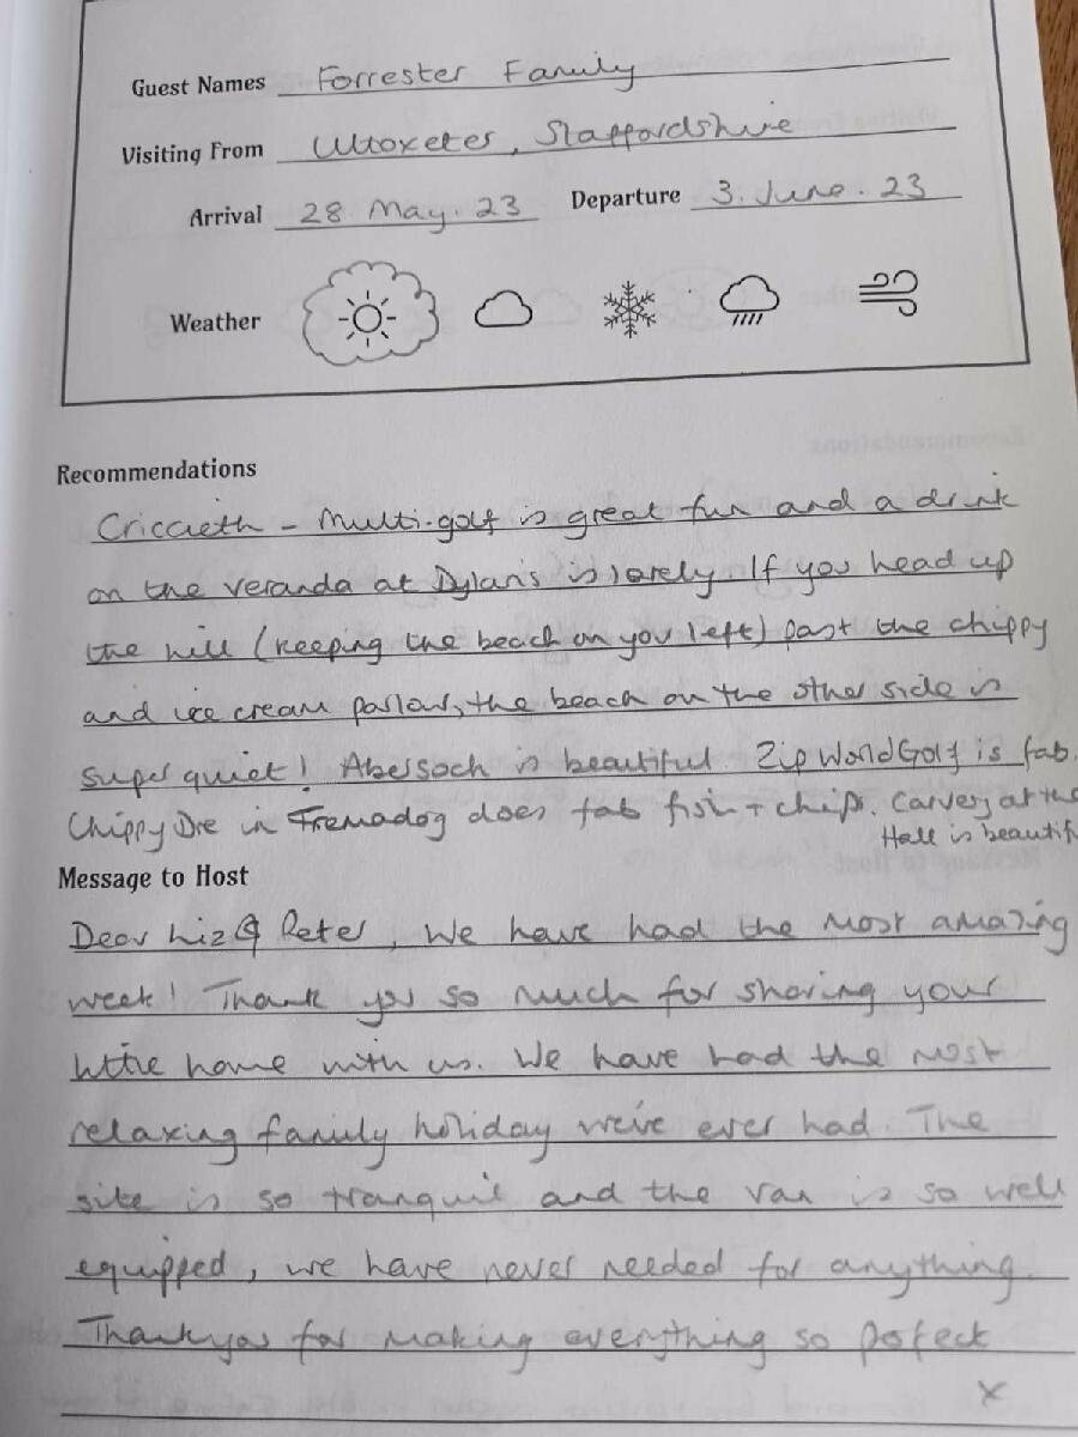 Guest Names Forrester Family
Visiting From Uttoxeter, Staffordshire
Arrival 28 May. 23 Departure 3. June. 23
Weather
Recommendations
Criccieth - Multi-golf is great fun and a drink
on the veranda at Dylan's is lovely. If you head up
the hill (keeping the beach on you left) past the chippy
and ice cream parlour, the beach on the other side is
super quiet! Abersoch is beautiful. Zip World Golf is fab.
Chippy Dre in Tremadog does fab fish + chips. Carvery at the
Hall is beautif
Message to Host
Dear Liz & Peter, We have had the most amazing
week! Thank you so much for sharing your
little home with us. We have had the most
relaxing family holiday we've ever had. The
site is so tranquil and the van is so well
equipped, we have never needed for anything.
Thankyou for making everything so perfect
x